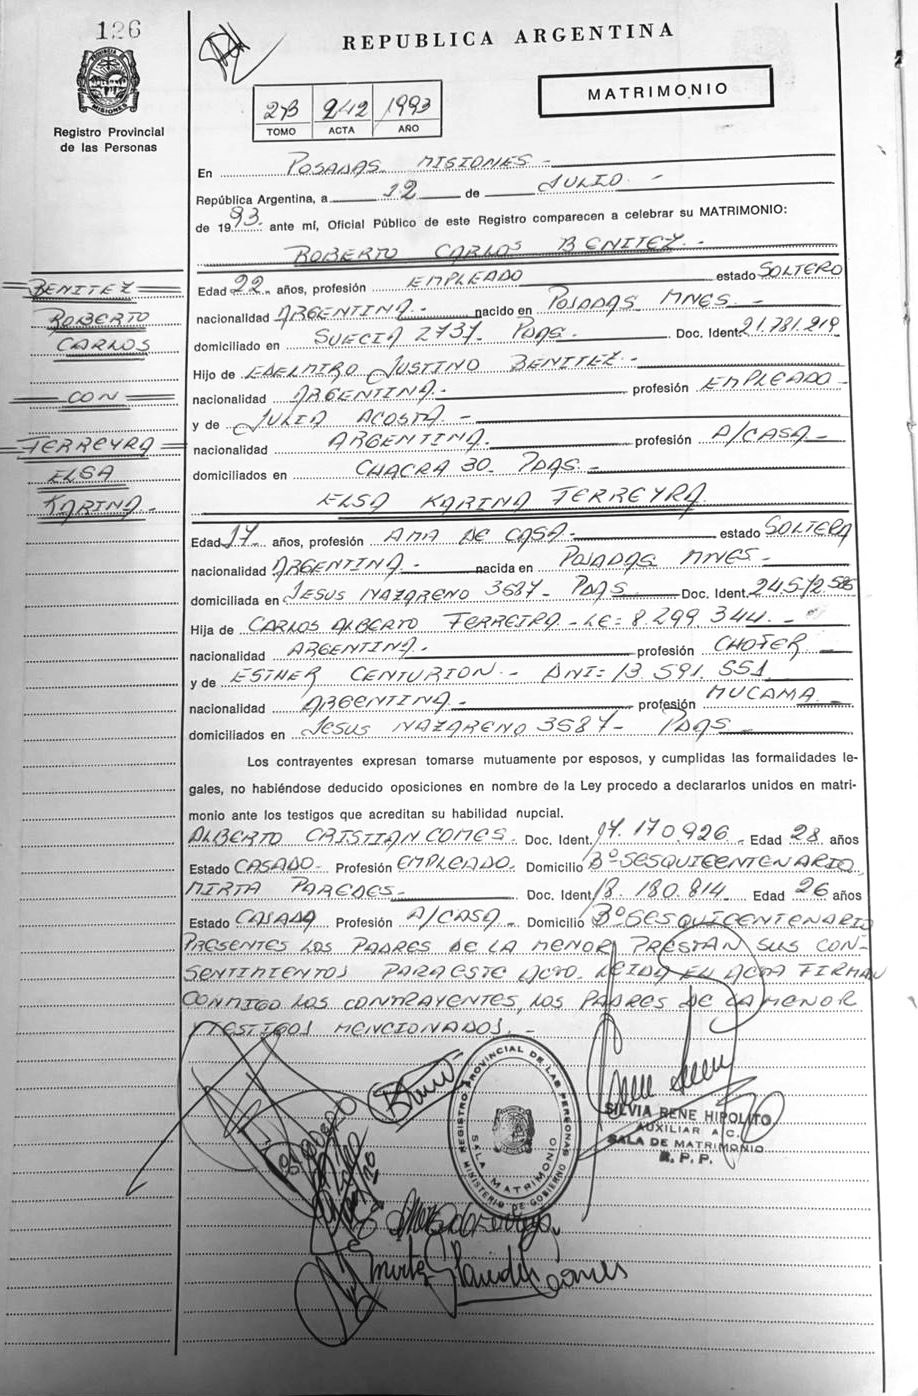 126
REPUBLICA ARGENTINA
MATRIMONIO
2-B 242 1993
TOMO ACTA AÑO
Registro Provincial
de las Personas
En POSADAS MISIONES -
República Argentina, a 12 de JULIO. -
de 1993. ante mí, Oficial Público de este Registro comparecen a celebrar su MATRIMONIO:
ROBERTO CARLOS BENITEZ. -
BENITEZ
ROBERTO
CARLOS
CON
FERREYRA
ELSA
KARINA. -
Edad 22. años, profesión EMPLEADO estado SOLTERO
nacionalidad ARGENTINA. - nacido en POSADAS MNES. -
domiciliado en SUECIA 2737. PDAS. Doc. Ident. 21.781.219
Hijo de EDELMIRO JUSTINO BENITEZ. -
nacionalidad ARGENTINA. profesión EMPLEADO -
y de JULIA ACOSTA -
nacionalidad ARGENTINA. profesión A/CASA -
domiciliados en CHACRA 30. PDAS. -
ELSA KARINA FERREYRA.
Edad 17. años, profesión AMA DE CASA. - estado SOLTERA
nacionalidad ARGENTINA. - nacida en POSADAS MNES -
domiciliada en JESUS NAZARENO 3587 - PDAS Doc. Ident.
Hija de CARLOS ALBERTO FERREIRA - LE: 8.299.344. -
nacionalidad ARGENTINA. - profesión CHOFER -
y de ESTHER CENTURION. - DNI: 13.591.551
nacionalidad ARGENTINA. - profesión MUCAMA -
domiciliados en JESUS NAZARENO 3587 - PDAS
Los contrayentes expresan tomarse mutuamente por esposos, y cumplidas las formalidades le-
gales, no habiéndose deducido oposiciones en nombre de la Ley procedo a declararlos unidos en matri-
monio ante los testigos que acreditan su habilidad nupcial.
ALBERTO CRISTIAN COMES. Doc. Ident. 17.170.926. - Edad 28 años
Estado CASADO. Profesión EMPLEADO. Domicilio Bº SESQUICENTENARIO
MIRTA PAREDES - Doc. Ident. 18.180.814 Edad 26 años
Estado CASADA Profesión A/CASA - Domicilio Bº SESQUICENTENARIO
PRESENTES LOS PADRES DE LA MENOR PRESTAN SUS CON-
SENTIMIENTOS PARA ESTE ACTO. LEIDA EL ACTA FIRMAN
CONMIGO LOS CONTRAYENTES, LOS PADRES DE LA MENOR
Y TESTIGOS MENCIONADOS. -
REGISTRO PROVINCIAL DE LAS PERSONAS
SALA MATRIMONIO
MINISTERIO DE GOBIERNO
SILVIA RENE HIPOLITO
AUXILIAR A.C.
SALA DE MATRIMONIO
R. P. P.